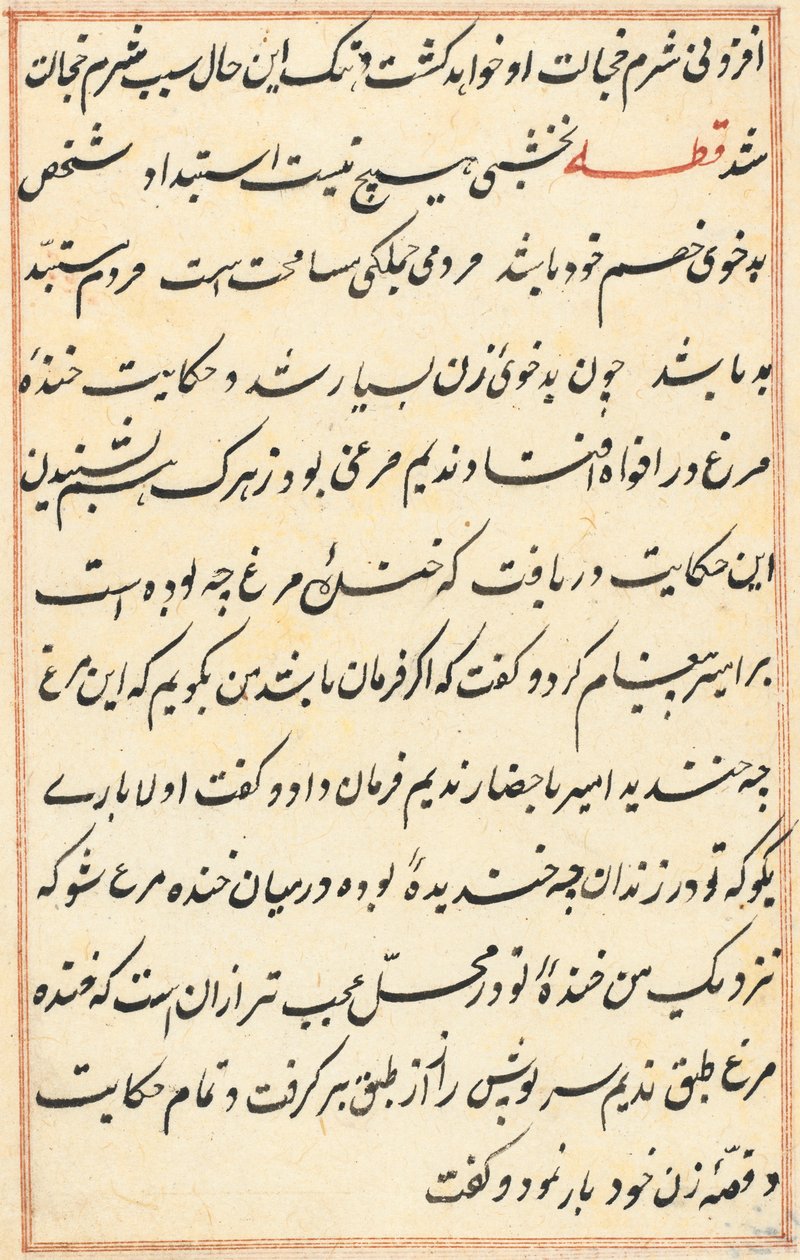 افزونی شرم خجالت او خواهد گشت و تنک این حال سبب شرم خجالت
شد قطعه نخشبی هیچ نیست استبداد شخص
بد خوی خصم خود باشد مردمی جملگی مسامحت است مردم مستبدّ
بد باشد چون بد خوئ زن بسیار شد و حکایت خندهٔ
مرغ در افواه افتاد ندیم مرغی بود زیرک هم بشنیدن
این حکایت دریافت که خندهٔ مرغ چه بوده است
بر امیر پیغام کرد و کفت که اکر فرمان باشد من بکویم که این مرغ
چه خندید امیر باحضار ندیم فرمان داد و کفت اولا بارے
بکو که تو در زندان چه خندیدهٔ بوده درمیان خنده مرغ شو که
نزدیک من خندهٔ تو در محلّ عجب تر ازان است که خنده
مرغ طبق ندیم سرپوش راز از طبق بر کرفت و تمام حکایت
و قصّهٔ زن خود باز نمود و کفت